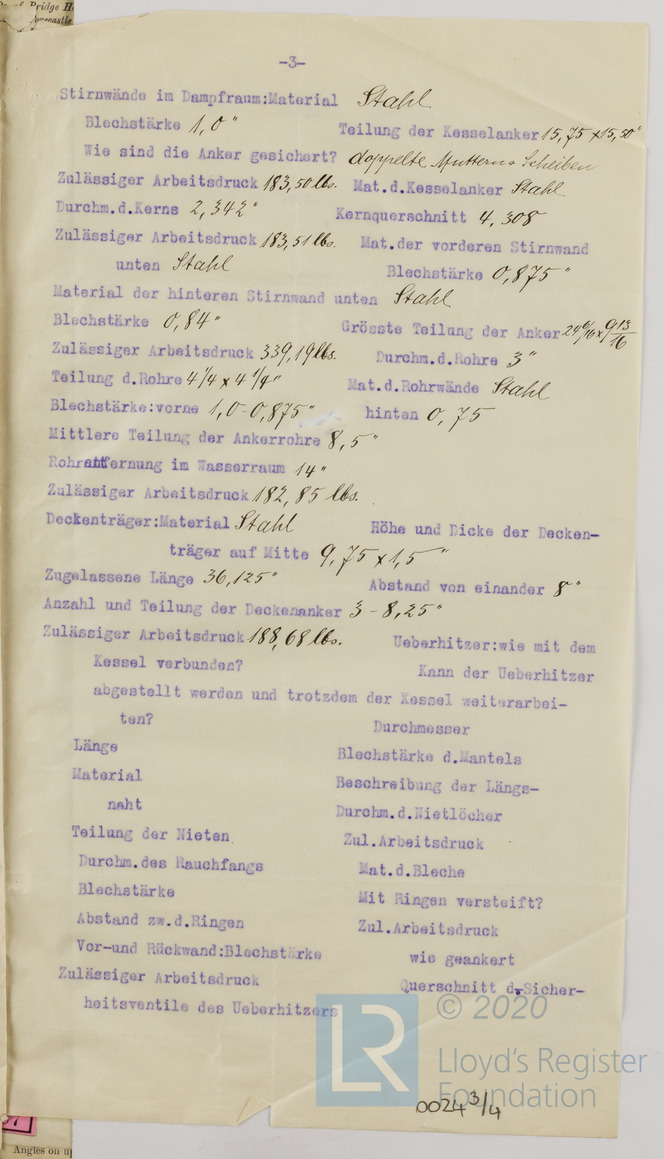 Bridge H
-3-
Stirnwände im Dampfraum:Material Stahl
Blechstärke 1,0" Teilung der Kesselanker 15,75 x 15,50"
Wie sind die Anker gesichert? doppelte Muttern & Scheiben
Zulässiger Arbeitsdruck 183,50 lbs. Mat.d.Kesselanker Stahl
Durchm.d.Kerns 2,342" Kernquerschnitt 4,308
Zulässiger Arbeitsdruck 183,51 lbs. Mat.der vorderen Stirnwand
unten Stahl Blechstärke 0,875"
Material der hinteren Stirnwand unten Stahl
Blechstärke 0,84" Grösste Teilung der Anker x 9 13/16
Zulässiger Arbeitsdruck 339,19 lbs. Durchm.d.Rohre 3"
Teilung d.Rohre 4 1/4 x 4 1/4" Mat.d.Rohrwände Stahl
Blechstärke:vorne 1,0-0,875" hinten 0,75
Mittlere Teilung der Ankerrohre 8,5"
Rohrentfernung im Wasserraum 14"
Zulässiger Arbeitsdruck 182,85 lbs.
Deckenträger:Material Stahl Höhe und Dicke der Decken-
träger auf Mitte 9,75 x 1,5"
Zugelassene Länge 36,125" Abstand von einander 8"
Anzahl und Teilung der Deckenanker 3 - 8,25"
Zulässiger Arbeitsdruck 188,68 lbs. Ueberhitzer:wie mit dem
Kessel verbunden? Kann der Ueberhitzer
abgestellt werden und trotzdem der Kessel weiterarbei-
ten? Durchmesser
Länge Blechstärke d.Mantels
Material Beschreibung der Längs-
naht Durchm.d.Nietlöcher
Teilung der Nieten Zul.Arbeitsdruck
Durchm.des Rauchfangs Mat.d.Bleche
Blechstärke Mit Ringen versteift?
Abstand zw.d.Ringen Zul.Arbeitsdruck
Vor-und Rückwand:Blechstärke wie geankert
Zulässiger Arbeitsdruck Querschnitt d.Sicher-
heitsventile des Ueberhitzers
© 2020
LR
Lloyd's Register
Foundation
0024 3/4
Angles on u